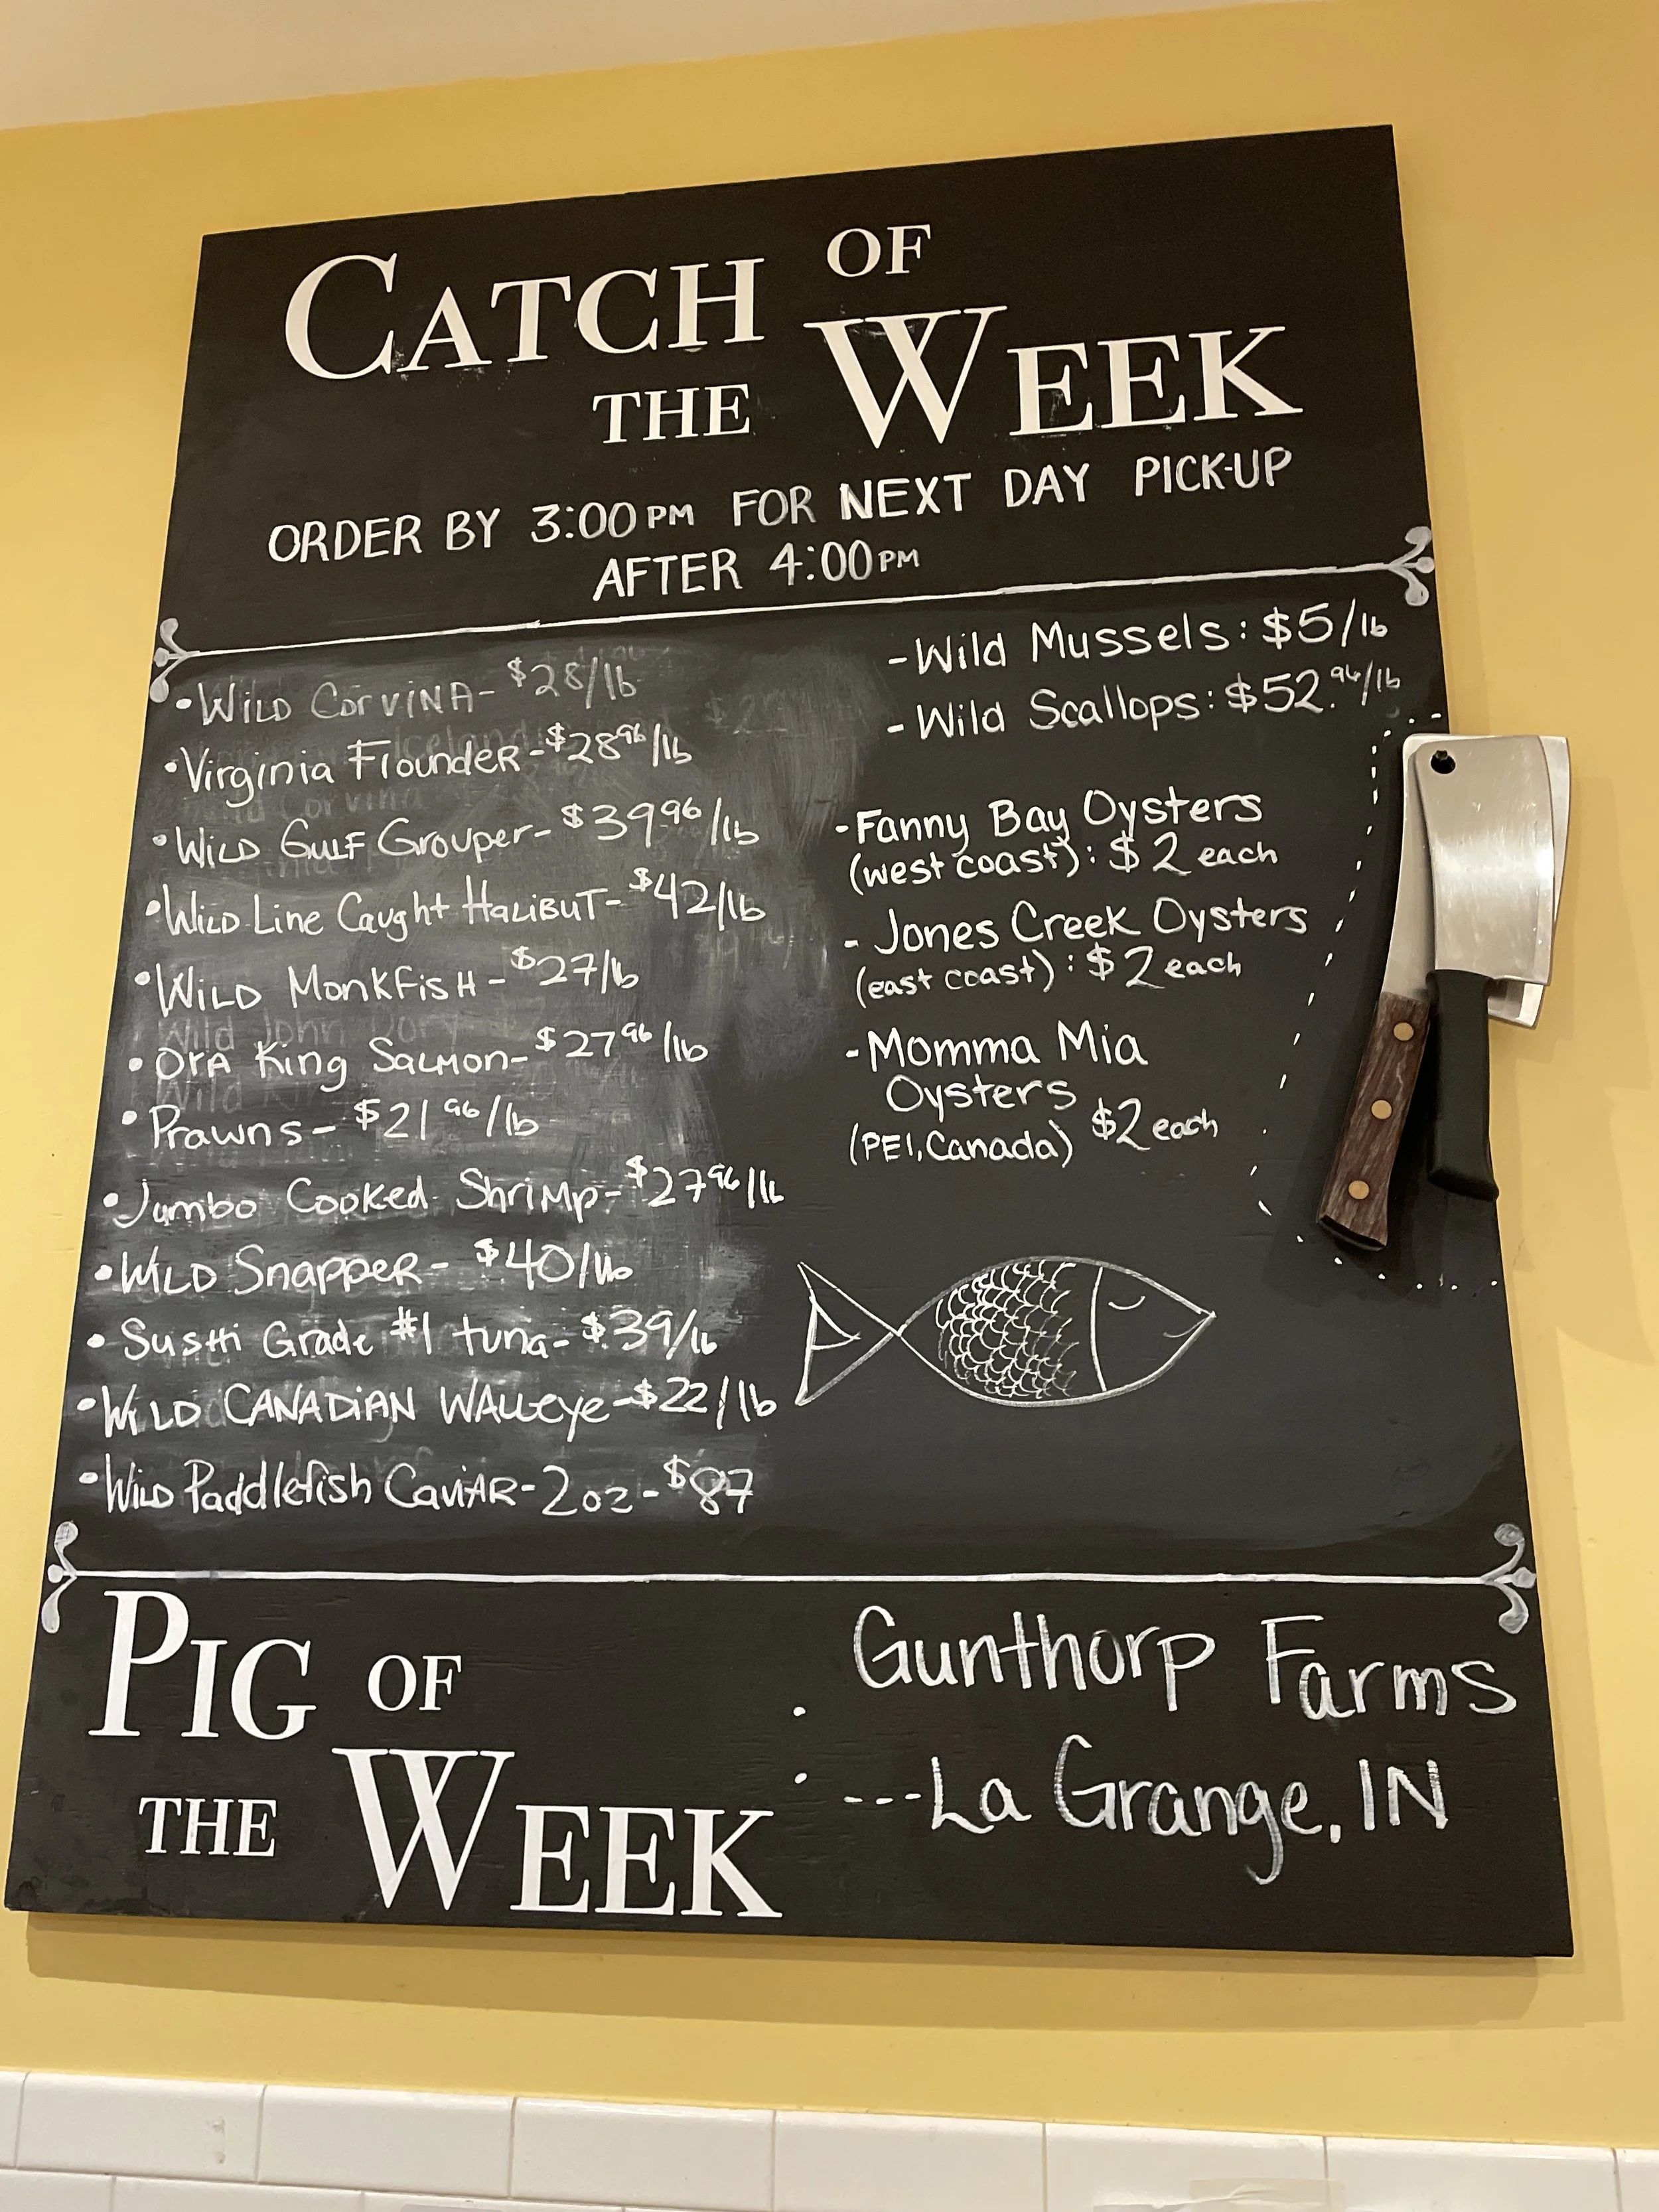 CATCH OF
THE WEEK
ORDER BY 3:00PM FOR NEXT DAY PICK-UP
AFTER 4:00PM
• WILD CORVINA - $28/lb
• Virginia Flounder - $28.96/lb
• Wild Gulf Grouper - $39.96/lb
• Wild Line Caught Halibut - $42/lb
• Wild Monkfish - $27/lb
• Ora King Salmon - $27.96/lb
• Prawns - $21.96/lb
• Jumbo Cooked Shrimp - $27.96/lb
• Wild Snapper - $40/lb
• Sushi Grade #1 tuna - $39/lb
• Wild Canadian Walleye - $22/lb
• Wild Paddlefish Caviar - 2oz - $87
- Wild Mussels: $5/lb
- Wild Scallops: $52.96/lb
- Fanny Bay Oysters
(west coast): $2 each
- Jones Creek Oysters
(east coast): $2 each
- Momma Mia
Oysters
(PEI, Canada) $2 each
PIG OF
THE WEEK
: Gunthorp Farms
---La Grange, IN